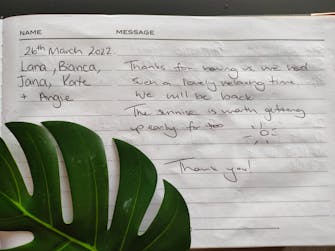 NAME MESSAGE
26th March 2022
Lana, Bianca, Thanks for having us we had
Jana, Kate such a lovely relaxing time
+ Angie We will be back
The sunrise is worth getting
up early for too
Thank you!